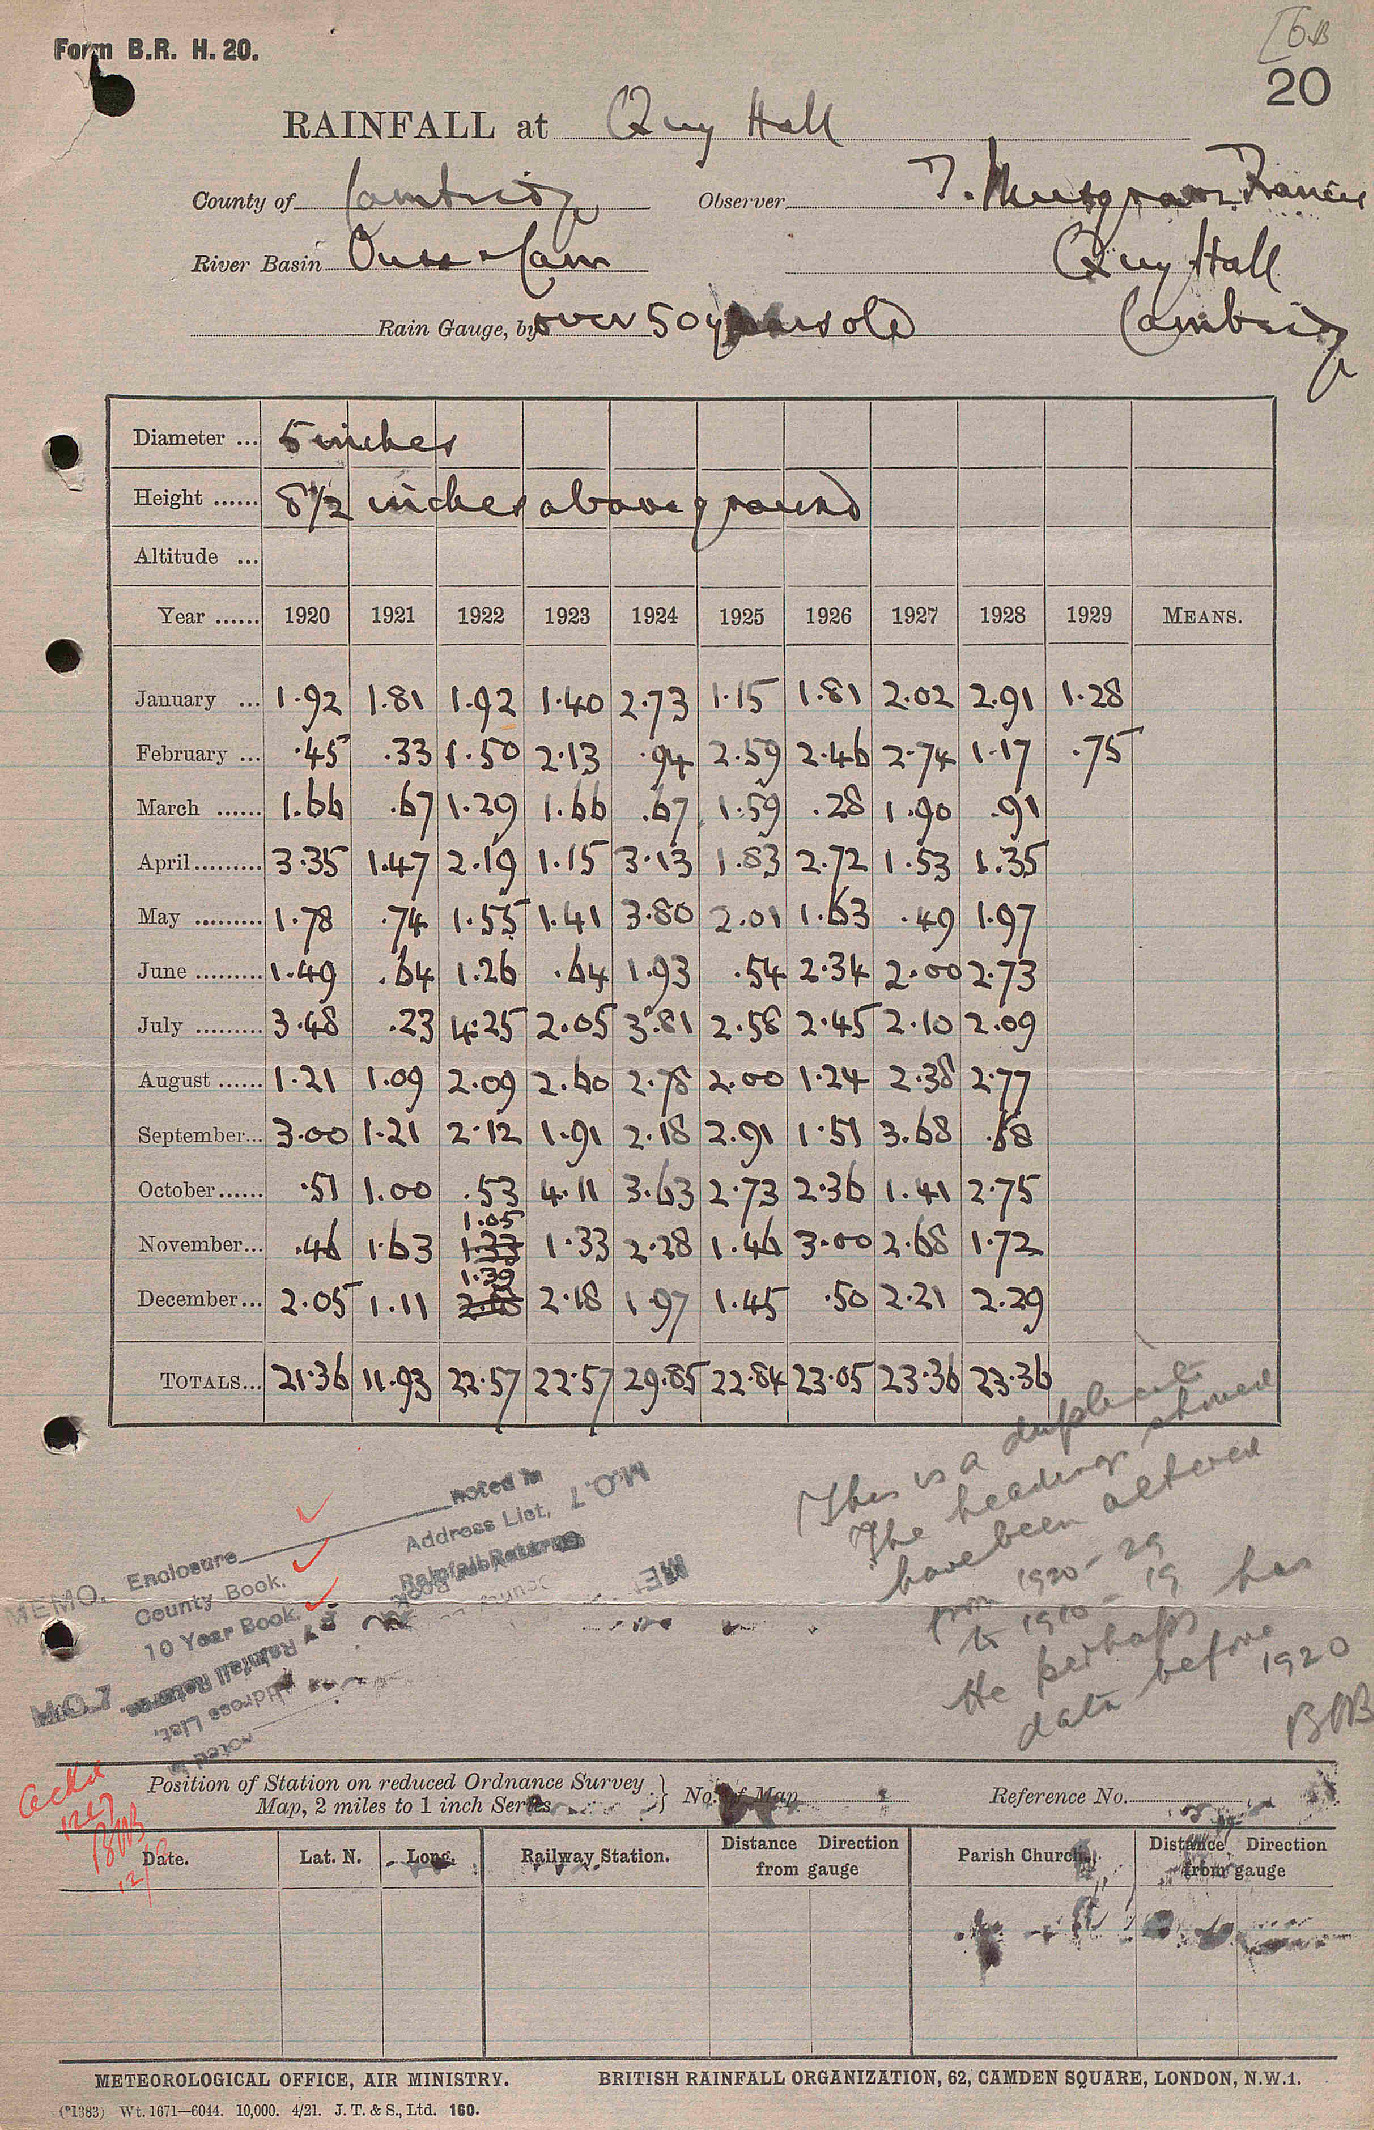 Form B.R. H. 20.
20
RAINFALL at Quy Hall
County of Cambridge Observer T. Musgrave Francis
River Basin Ouse - Cam Quy Hall
Rain Gauge, by over 50 years old Cambridge
Diameter ... 5 inches
Height ...... 8 1/2 inches above ground
Altitude ...
Year ...... 1920 1921 1922 1923 1924 1925 1926 1927 1928 1929 MEANS.
January ... 1.92 1.81 1.92 1.40 2.73 1.15 1.81 2.02 2.91 1.28
February ... .45 .33 1.50 2.13 .94 2.59 2.46 2.74 1.17 .75
March ...... 1.66 .67 1.29 1.66 .67 1.59 .28 1.90 .91
April ......... 3.35 1.47 2.19 1.15 3.13 1.83 2.72 1.53 1.35
May ......... 1.78 .74 1.55 1.41 3.80 2.01 1.63 .49 1.97
June ......... 1.49 .64 1.26 .64 1.93 .54 2.34 2.00 2.73
July ......... 3.48 .23 4.25 2.05 3.81 2.58 2.45 2.10 2.09
August ...... 1.21 1.09 2.09 2.60 2.78 2.00 1.24 2.38 2.77
September... 3.00 1.21 2.12 1.91 2.18 2.91 1.51 3.68 .68
October...... .51 1.00 .53 4.11 3.63 2.73 2.36 1.41 2.75
1.05
November... .46 1.63 1.33 1.33 2.28 1.46 3.00 2.68 1.72
1.39
December... 2.05 1.11 2.18 2.18 1.97 1.45 .50 2.21 2.29
TOTALS... 21.36 11.93 22.57 22.57 29.85 22.84 23.05 23.36 23.36
This is a duplicate
The headings should
have been altered
from 1920-29
to 1910-19
He perhaps has
data before 1920
BOB
noted in
Enclosure Address List, M.O.7.
County Book. Rainfall Returns
10 Year Book.
MEMO.
Rainfall Returns
M.O.7. Address List,
noted in
Ackd
1227
BOB
12/
Position of Station on reduced Ordnance Survey
Map, 2 miles to 1 inch Series No. of Map Reference No.
Date. Lat. N. Long. Railway Station. Distance Direction from gauge Parish Church. Distance Direction from gauge
METEOROLOGICAL OFFICE, AIR MINISTRY. BRITISH RAINFALL ORGANIZATION, 62, CAMDEN SQUARE, LONDON, N.W.1.
(*1383) Wt. 1671—6044. 10,000. 4/21. J. T. & S., Ltd. 160.